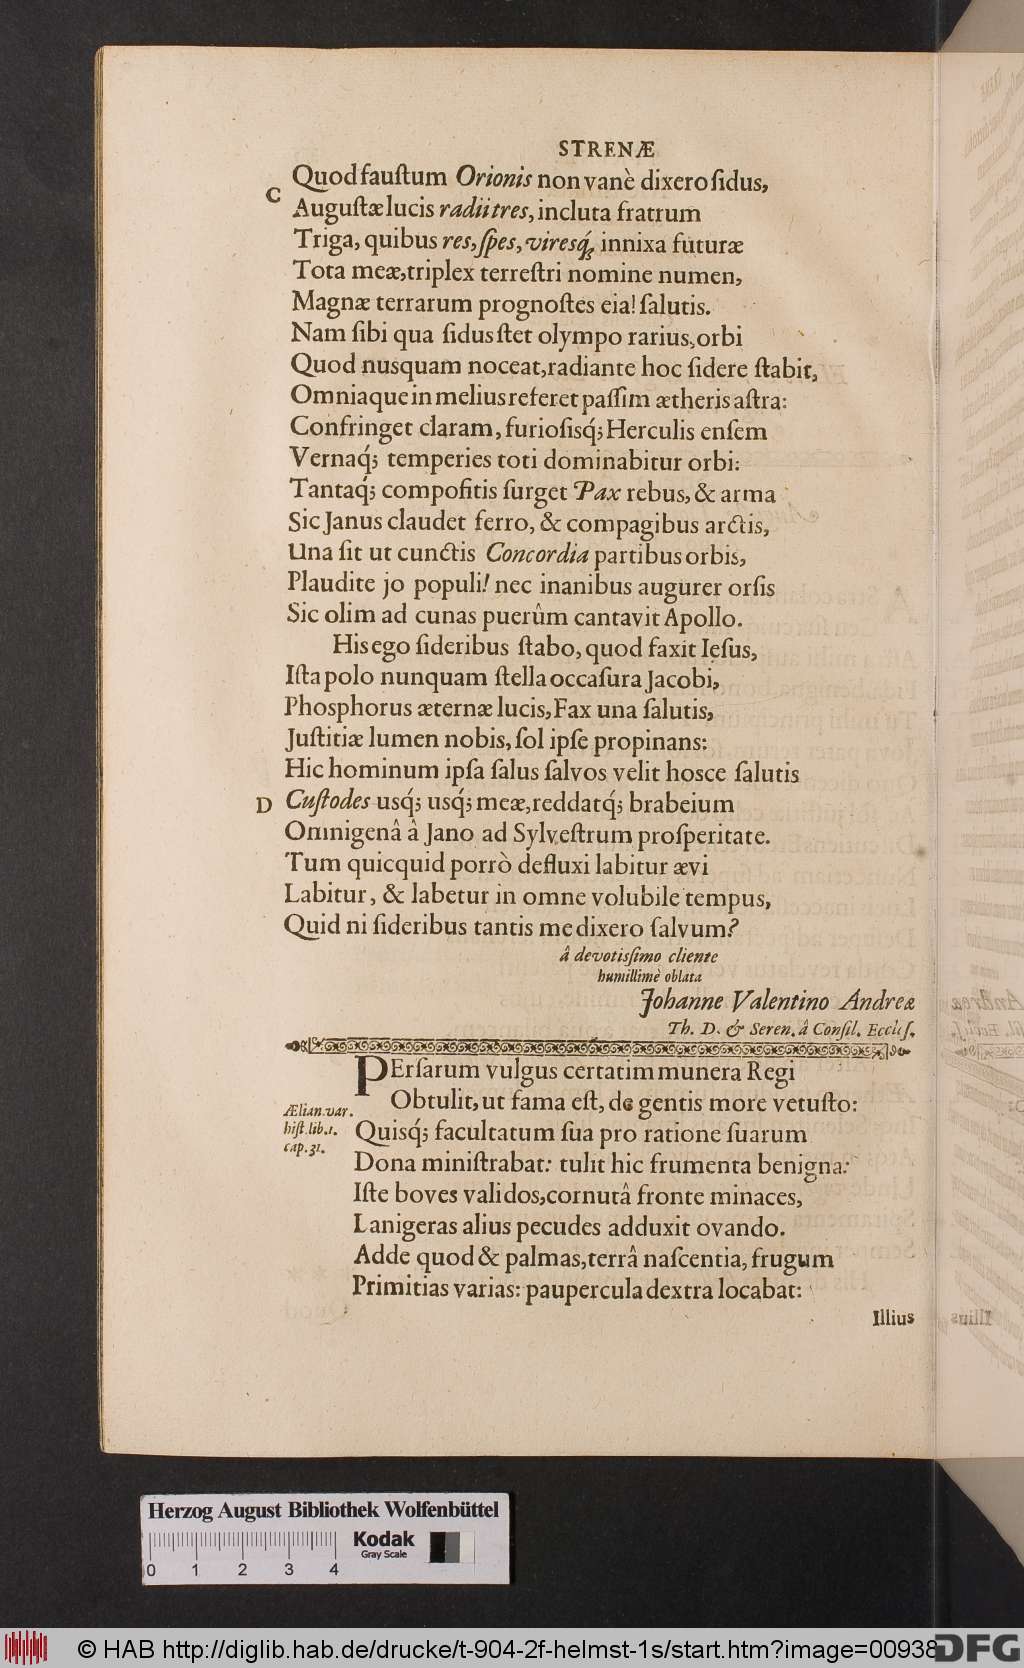 STRENÆ
Quod fauſtum Orionis non vanè dixero ſidus,
C
Auguſtæ lucis radii tres, incluta fratrum
Triga, quibus res, ſpes, viresq́; innixa futuræ
Tota meæ, triplex terreſtri nomine numen,
Magnæ terrarum prognoſtes eia! ſalutis.
Nam ſibi qua ſidus ſtet olympo rarius, orbi
Quod nusquam noceat, radiante hoc ſidere ſtabit,
Omniaque in melius referet paſſim ætheris aſtra:
Confringet claram, furioſisq́; Herculis enſem
Vernaq́; temperies toti dominabitur orbi:
Tantaq́; compoſitis ſurget Pax rebus, & arma
Sic Janus claudet ferro, & compagibus arctis,
Una ſit ut cunctis Concordia partibus orbis,
Plaudite jo populi! nec inanibus augurer orſis
Sic olim ad cunas puerûm cantavit Apollo.
His ego ſideribus ſtabo, quod faxit Ieſus,
Iſta polo nunquam ſtella occaſura Jacobi,
Phosphorus æternæ lucis, Fax una ſalutis,
Juſtitiæ lumen nobis, ſol ipſe propinans:
Hic hominum ipſa ſalus ſalvos velit hosce ſalutis
D Cuſtodes usq́; usq́; meæ, reddatq́; brabeium
Omnigenâ â Jano ad Sylveſtrum proſperitate.
Tum quicquid porrò defluxi labitur ævi
Labitur, & labetur in omne volubile tempus,
Quid ni ſideribus tantis me dixero ſalvum?
â devotiſsimo cliente
humillimè oblata
Johanne Valentino Andreæ
Th. D. & Seren. â Conſil. Eccleſ.
PErſarum vulgus certatim munera Regi
Obtulit, ut fama eſt, de gentis more vetuſto:
Ælian. var.
hiſt. lib. 1.
cap. 31.
Quisq́; facultatum ſua pro ratione ſuarum
Dona miniſtrabat: tulit hic frumenta benigna:
Iſte boves validos, cornutâ fronte minaces,
Lanigeras alius pecudes adduxit ovando.
Adde quod & palmas, terrâ naſcentia, frugum
Primitias varias: paupercula dextra locabat:
Illius
Herzog August Bibliothek Wolfenbüttel
Kodak
Gray Scale
0 1 2 3 4
© HAB http://diglib.hab.de/drucke/t-904-2f-helmst-1s/start.htm?image=00938
DFG